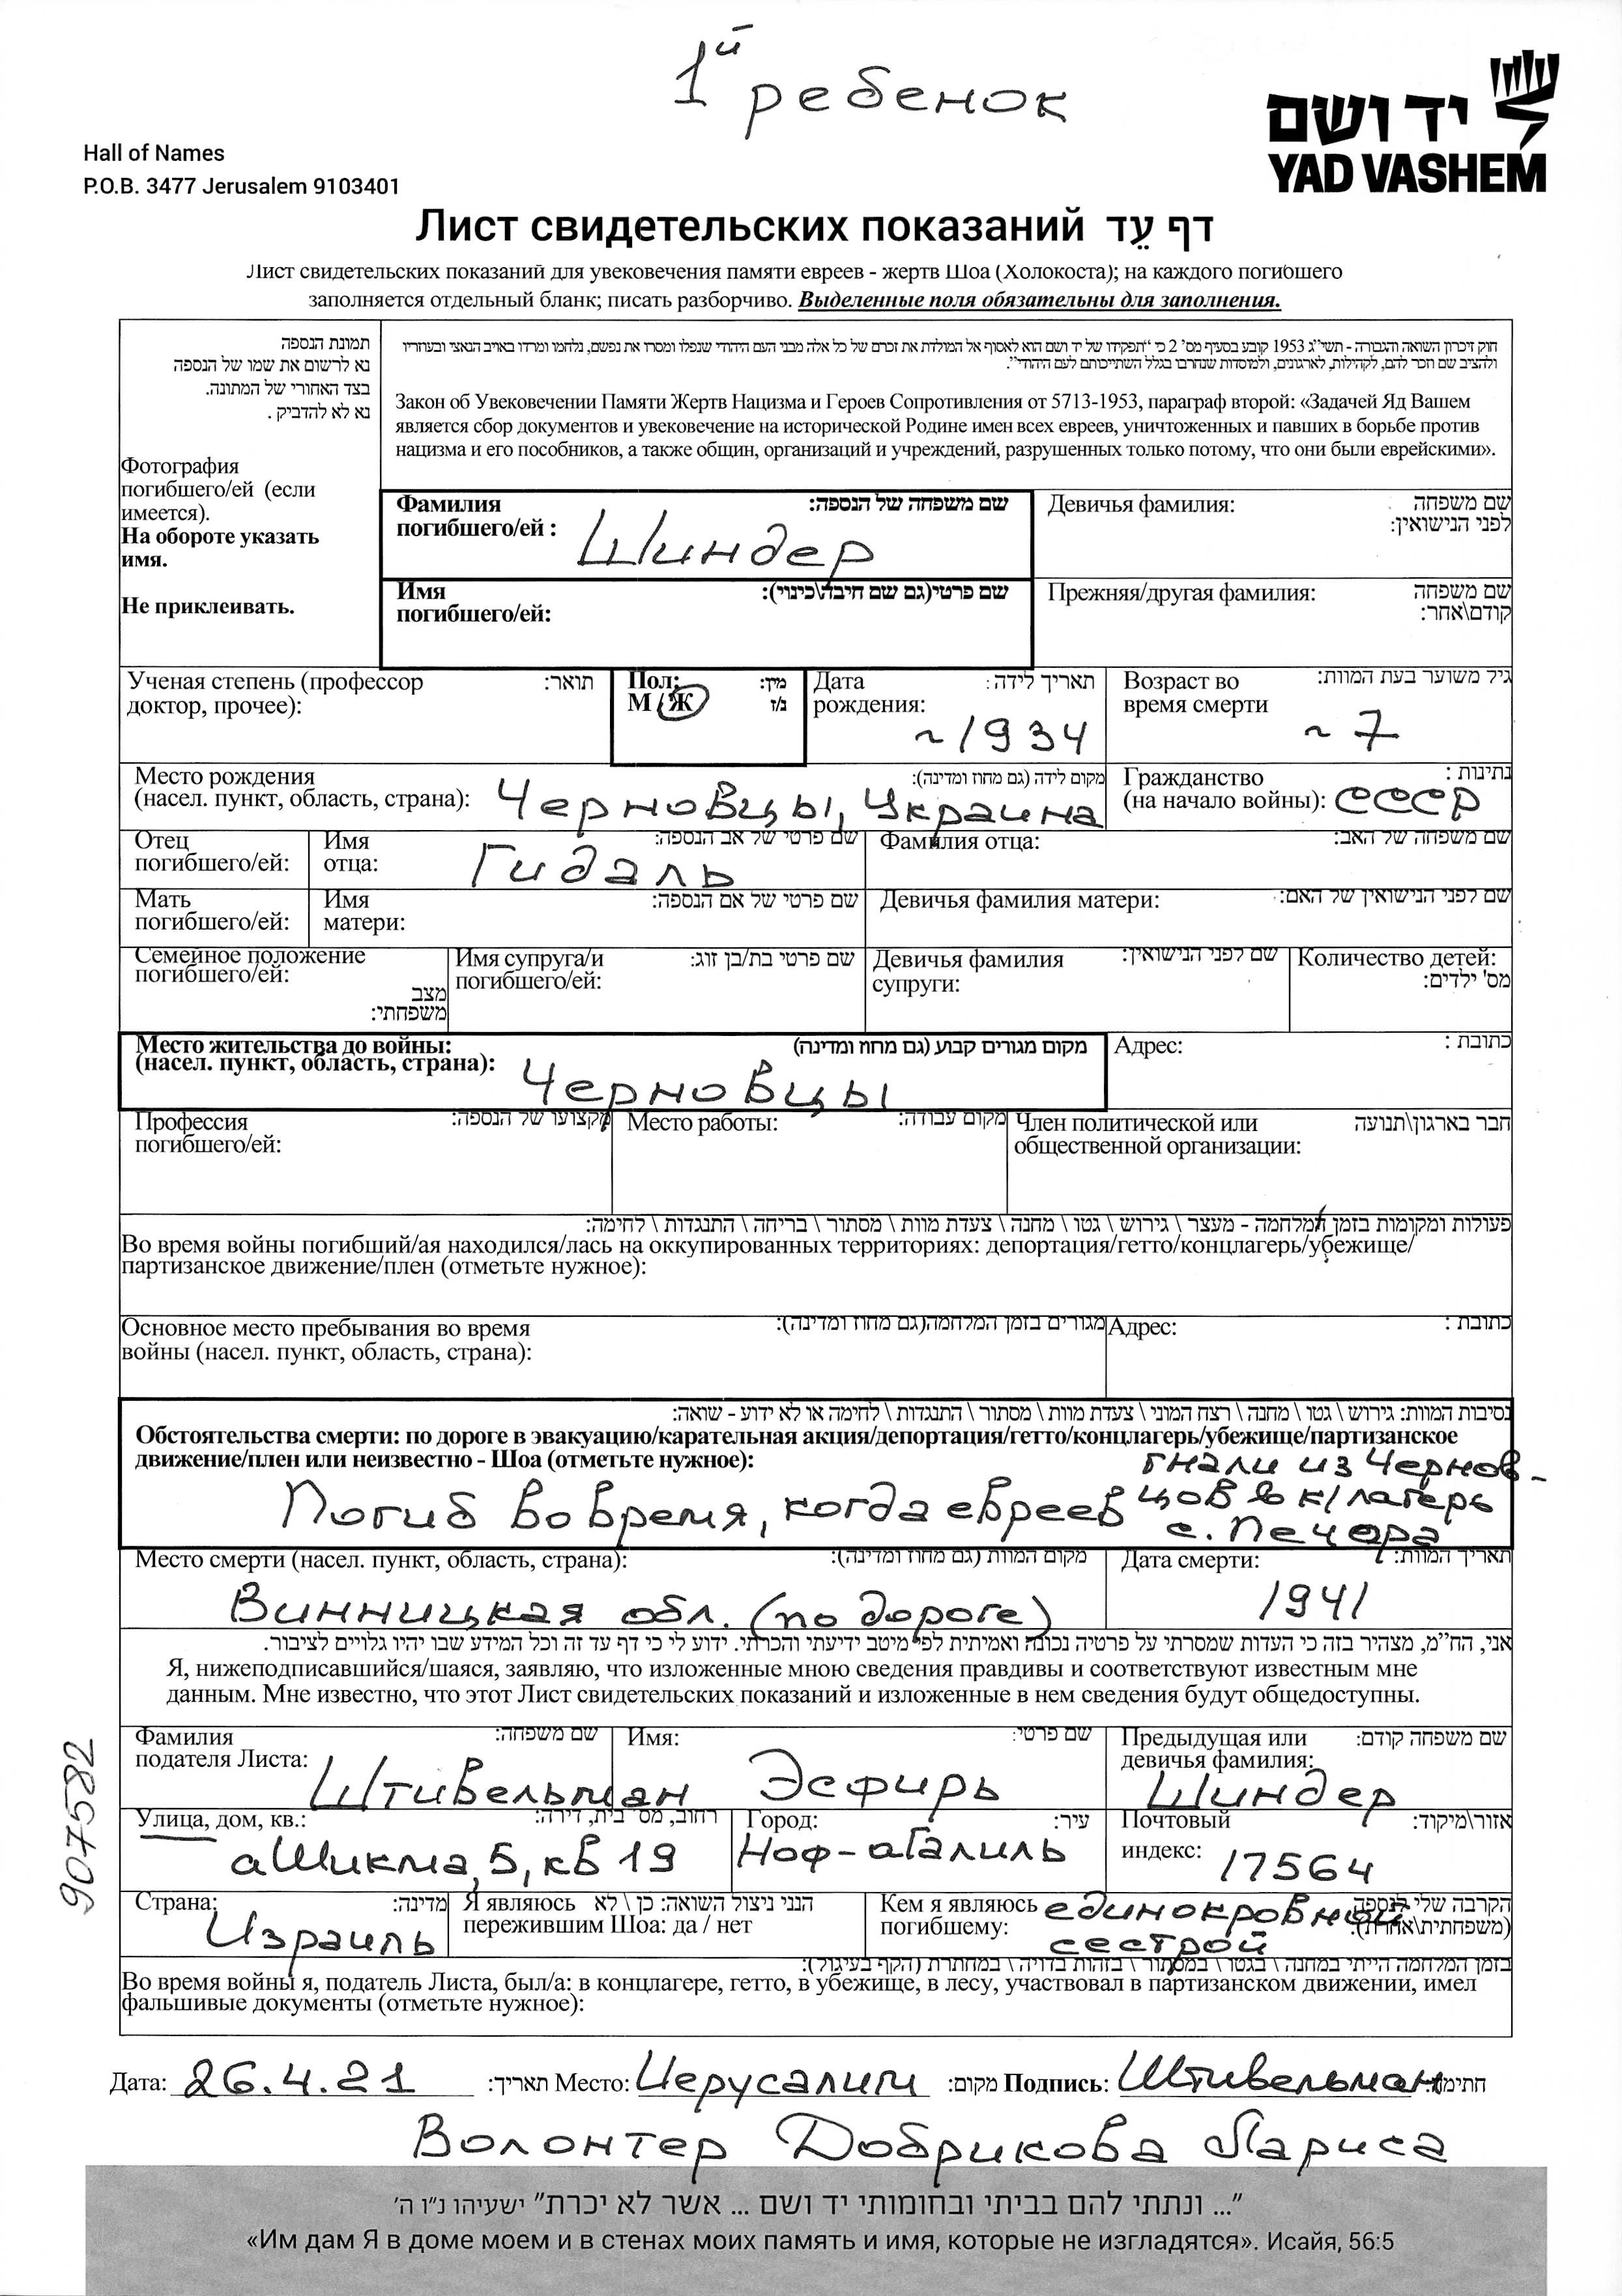 1й ребенок
יד ושם
YAD VASHEM
Hall of Names
P.O.B. 3477 Jerusalem 9103401
Лист свидетельских показаний דף עֵד
Лист свидетельских показаний для увековечения памяти евреев - жертв Шоа (Холокоста); на каждого погибшего
заполняется отдельный бланк; писать разборчиво. Выделенные поля обязательны для заполнения.
תמונת הנספה
נא לרשום את שמו של הנספה
בצד האחורי של המתונה.
נא לא להדביק .
Фотография
погибшего/ей (если
имеется).
На обороте указать
имя.
Не приклеивать.
חוק זיכרון השואה והגבורה - תשי"ג 1953 קובע בסעיף מס' 2 כי "תפקידו של יד ושם הוא לאסוף אל המולדת את זכרם של כל אלה מבני העם היהודי שנפלו ומסרו את נפשם, נלחמו ומרדו באויב הנאצי ובעוזריו
ולהציב שם וזכר להם, לקהילות, לארגונים, ולמוסדות שנחרבו בגלל השתייכותם לעם היהודי".
Закон об Увековечении Памяти Жертв Нацизма и Героев Сопротивления от 5713-1953, параграф второй: «Задачей Яд Вашем
является сбор документов и увековечение на исторической Родине имен всех евреев, уничтоженных и павших в борьбе против
нацизма и его пособников, а также общин, организаций и учреждений, разрушенных только потому, что они были еврейскими».
Фамилия שם משפחה של הנספה:
погибшего/ей : Шиндер
Девичья фамилия: שם משפחה
לפני הנישואין:
Имя שם פרטי(גם שם חיבה\כינוי):
погибшего/ей:
Прежняя/другая фамилия: שם משפחה
קודם\אחר:
Ученая степень (профессор תואר:
доктор, прочее):
Пол: מין:
М / Ж ז/נ
Дата תאריך לידה:
рождения: ~1934
Возраст во גיל משוער בעת המוות:
время смерти ~ 7
Место рождения מקום לידה (גם מחוז ומדינה):
(насел. пункт, область, страна): Черновцы, Украина
Гражданство נתינות :
(на начало войны): СССР
Отец
погибшего/ей:
Имя שם פרטי של אב הנספה:
отца: Гидаль
Фамилия отца: שם משפחה של האב:
Мать
погибшего/ей:
Имя שם פרטי של אם הנספה:
матери:
Девичья фамилия матери: שם לפני הנישואין של האם:
Семейное положение
погибшего/ей:
מצב
משפחתי:
Имя супруга/и שם פרטי בת/בן זוג:
погибшего/ей:
Девичья фамилия שם לפני הנישואין:
супруги:
Количество детей:
מס' ילדים:
Место жительства до войны: מקום מגורים קבוע (גם מחוז ומדינה)
(насел. пункт, область, страна): Черновцы
Адрес: כתובת :
Профессия מקצועו של הנספה:
погибшего/ей:
Место работы: מקום עבודה:
Член политической или חבר בארגון\תנועה
общественной организации:
פעולות ומקומות בזמן המלחמה - מעצר \ גירוש \ גטו \ מחנה \ צעדת מוות \ מסתור \ בריחה \ התנגדות \ לחימה:
Во время войны погибший/ая находился/лась на оккупированных территориях: депортация/гетто/концлагерь/убежище/
партизанское движение/плен (отметьте нужное):
Основное место пребывания во время מגורים בזמן המלחמה(גם מחוז ומדינה):
войны (насел. пункт, область, страна):
Адрес: כתובת :
נסיבות המוות: גירוש \ גטו \ מחנה \ רצח המוני \ צעדת מוות \ מסתור \ התנגדות \ לחימה או לא ידוע - שואה:
Обстоятельства смерти: по дороге в эвакуацию/карательная акция/депортация/гетто/концлагерь/убежище/партизанское
движение/плен или неизвестно - Шоа (отметьте нужное):
Погиб во время, когда евреев гнали из Чернов-
цов в к/лагерь
с. Печора
Место смерти (насел. пункт, область, страна): מקום המוות (גם מחוז ומדינה):
Винницкая обл. (по дороге)
Дата смерти: תאריך המוות:
1941
אני, הח"מ, מצהיר בזה כי העדות שמסרתי על פרטיה נכונה ואמיתית לפי מיטב ידיעתי והכרתי. ידוע לי כי דף עד זה וכל המידע שבו יהיו גלויים לציבור.
Я, нижеподписавшийся/шаяся, заявляю, что изложенные мною сведения правдивы и соответствуют известным мне
данным. Мне известно, что этот Лист свидетельских показаний и изложенные в нем сведения будут общедоступны.
Фамилия שם משפחה:
подателя Листа: Штивельман
Имя: שם פרטי:
Эсфирь
Предыдущая или שם משפחה קודם:
девичья фамилия:
Шиндер
Улица, дом, кв.: רחוב, מס' בית, דירה:
аШикма, 5, кв 19
Город: עיר:
Ноф-аГалиль
Почтовый אזור\מיקוד:
индекс: 17564
Страна: מדינה:
Израиль
Я являюсь הנני ניצול השואה: כן \ לא
пережившим Шоа: да / нет
Кем я являюсь הקרבה שלי לנספה
погибшему: (משפחתית\אחרת):
единокровной
сестрой
בזמן המלחמה הייתי במחנה \ בגטו \ במסתור \ בזהות בדויה \ במחתרת (הקף בעיגול):
Во время войны я, податель Листа, был/а: в концлагере, гетто, в убежище, в лесу, участвовал в партизанском движении, имел
фальшивые документы (отметьте нужное):
Дата: 26.4.21 תאריך: Место: Иерусалим מקום: Подпись: Штивельман חתימה:
Волонтер Добрикова Лариса
907582
"... ונתתי להם בביתי ובחומותי יד ושם ... אשר לא יכרת" ישעיהו נ"ו ה'
«Им дам Я в доме моем и в стенах моих память и имя, которые не изгладятся». Исайя, 56:5